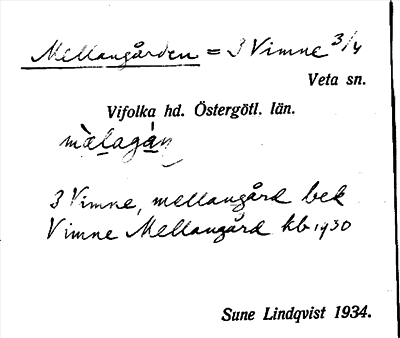 Mellangården = 3 Vimne 3/4
Veta sn.
Vifolka hd. Östergötl. län.
mæ̀lagán
3 Vimne, mellangård bek
Vimne Mellangård kb 1930
Sune Lindqvist 1934.